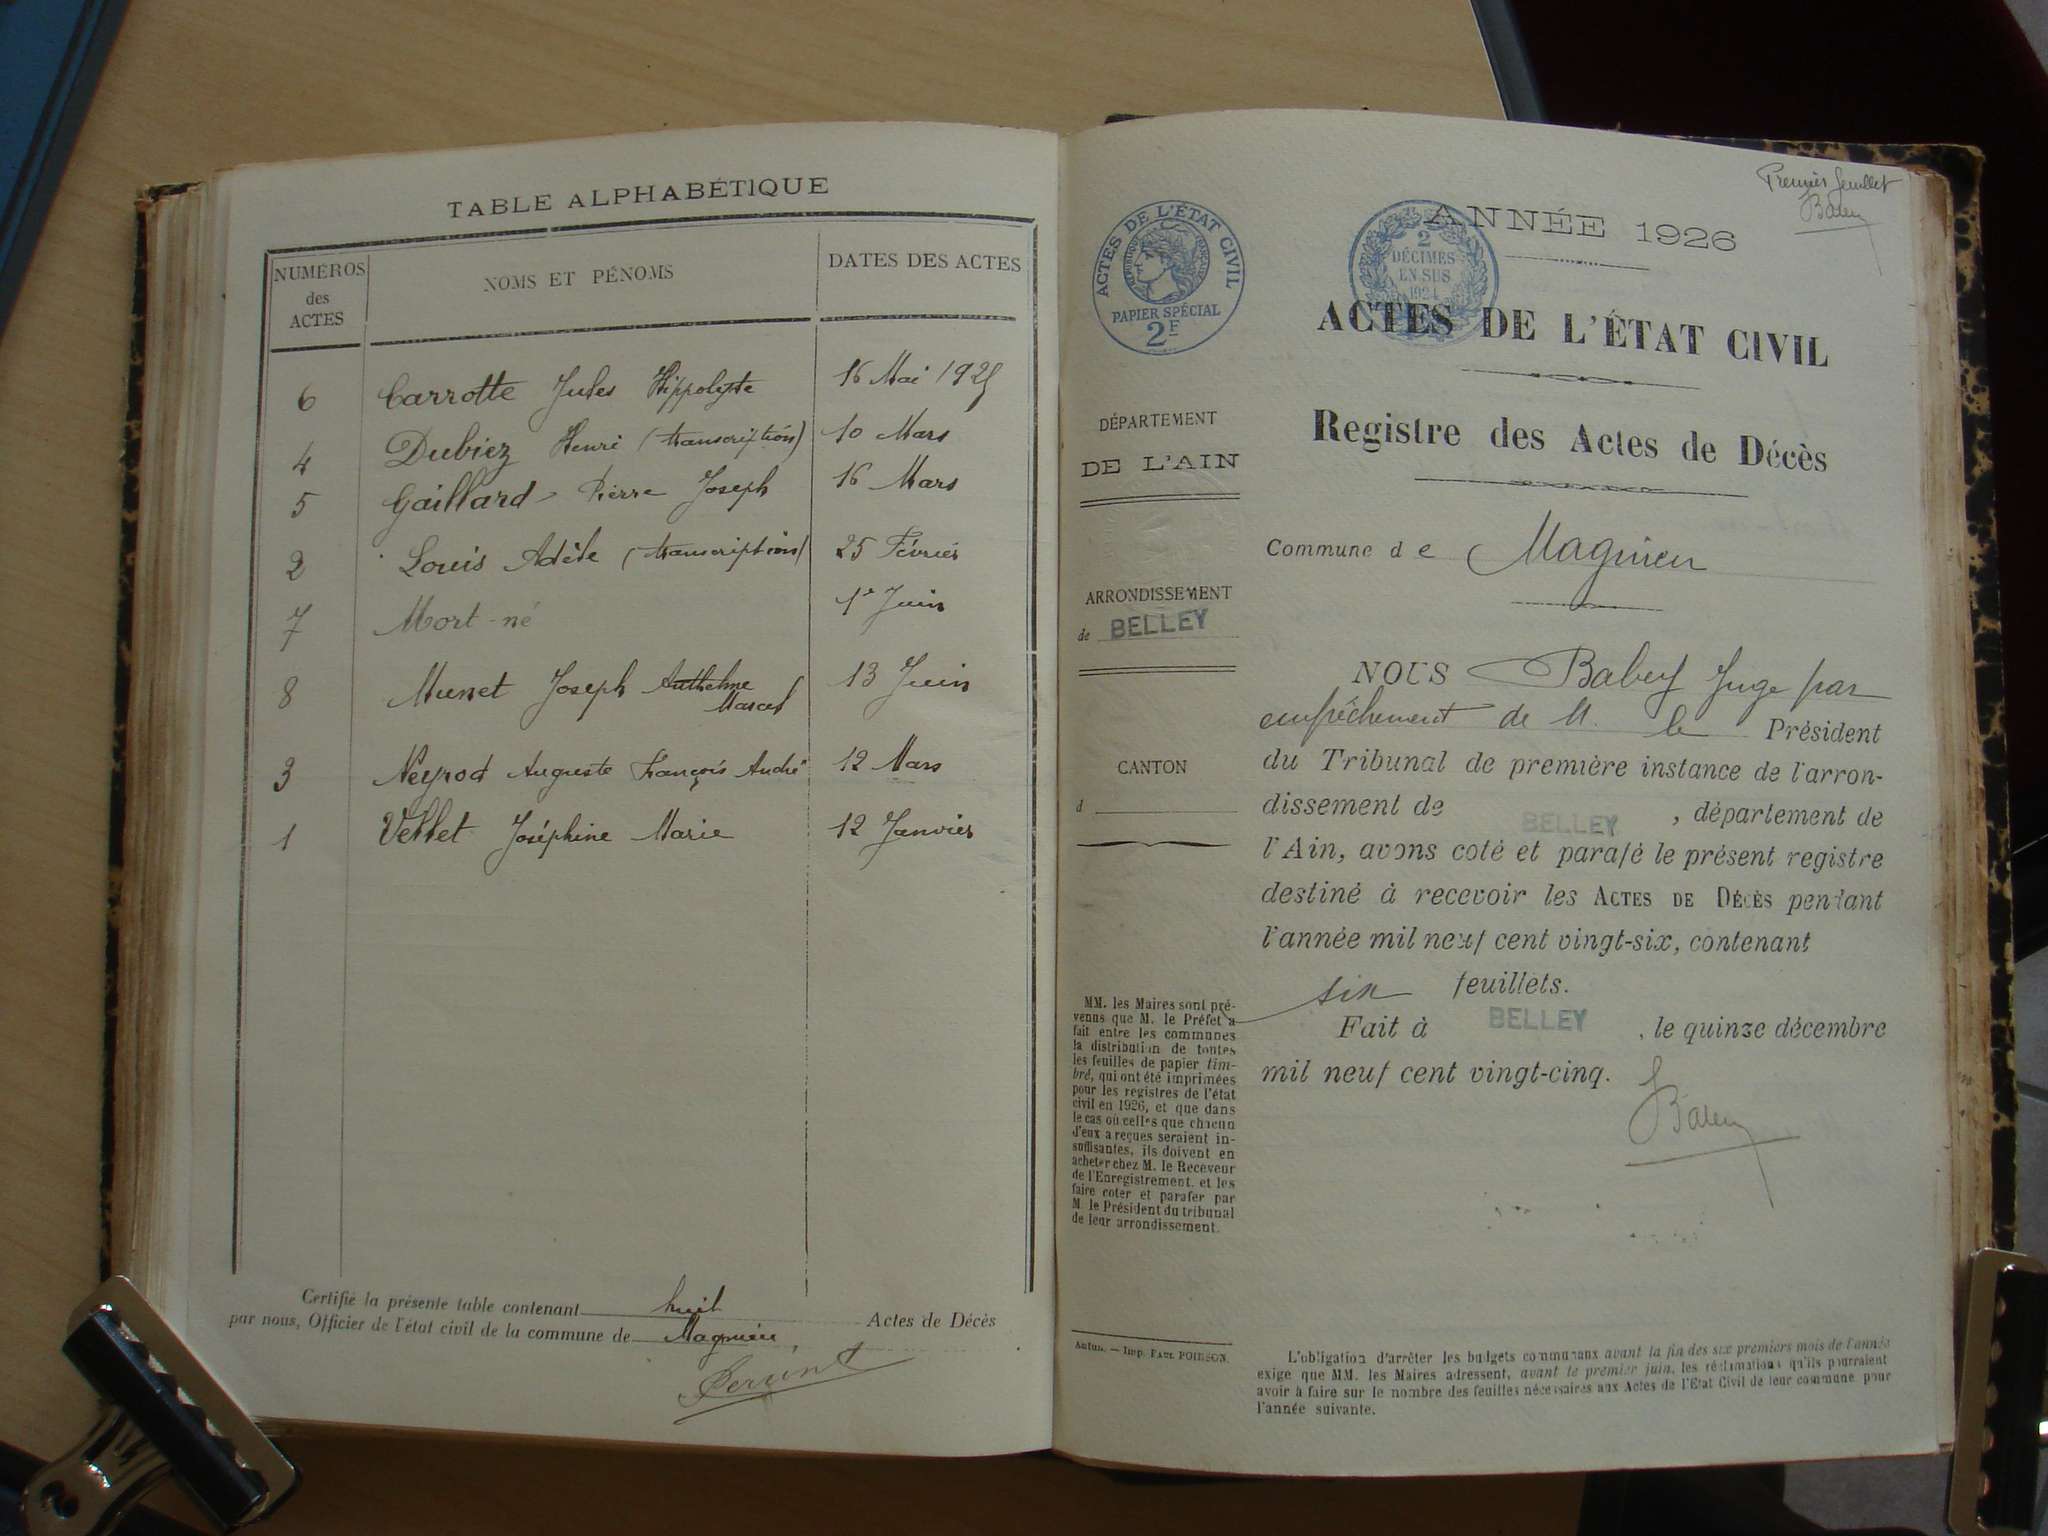 TABLE ALPHABÉTIQUE
NUMÉROS des ACTES NOMS ET PÉNOMS DATES DES ACTES
6 Carrotte Jules Hippolyte 16 Mai 1925
4 Dubiez Henri (transcription) 10 Mars
5 Gaillard Pierre Joseph 16 Mars
2 Louis Adèle (transcription) 25 Février
7 Mort-né 1e Juin
8 Munet Joseph Anthelme Marcel 13 Juin
3 Neyrod Auguste François André 12 Mars
1 Vettet Joséphine Marie 12 Janvier
Certifié la présente table contenant huit Actes de Décès
par nous, Officier de l'état civil de la commune de Magnieu
Premier feuillet
ACTES DE L'ÉTAT CIVIL
RÉPUBLIQUE FRANÇAISE
PAPIER SPÉCIAL
2F
2
DÉCIMES
EN SUS
1924
ANNÉE 1926
ACTES DE L'ÉTAT CIVIL
Registre des Actes de Décès
Commune de Magnieu
DÉPARTEMENT
DE L'AIN
ARRONDISSEMENT
de BELLEY
CANTON
d
MM. les Maires sont pré-
venus que M. le Préfet a
fait entre les communes
la distribution de toutes
les feuilles de papier tim-
bré, qui ont été imprimées
pour les registres de l'état
civil en 1926, et que dans
le cas où celles que chacun
d'eux a reçues seraient in-
suffisantes, ils doivent en
acheter chez M. le Receveur
de l'Enregistrement, et les
faire coter et parafer par
M. le Président du tribunal
de leur arrondissement.
Autun. — Imp. PAUL POIRSON.
NOUS Babey Juge par
empêchement de M. le Président
du Tribunal de première instance de l'arron-
dissement de BELLEY, département de
l'Ain, avons coté et parafé le présent registre
destiné à recevoir les ACTES DE DÉCÈS pendant
l'année mil neuf cent vingt-six, contenant
six feuillets.
Fait à BELLEY, le quinze décembre
mil neuf cent vingt-cinq.
L'obligation d'arrêter les budgets communaux avant la fin des six premiers mois de l'année
exige que MM. les Maires adressent, avant le premier juin, les réclamations qu'ils pourraient
avoir à faire sur le nombre des feuilles nécessaires aux Actes de l'État Civil de leur commune pour
l'année suivante.